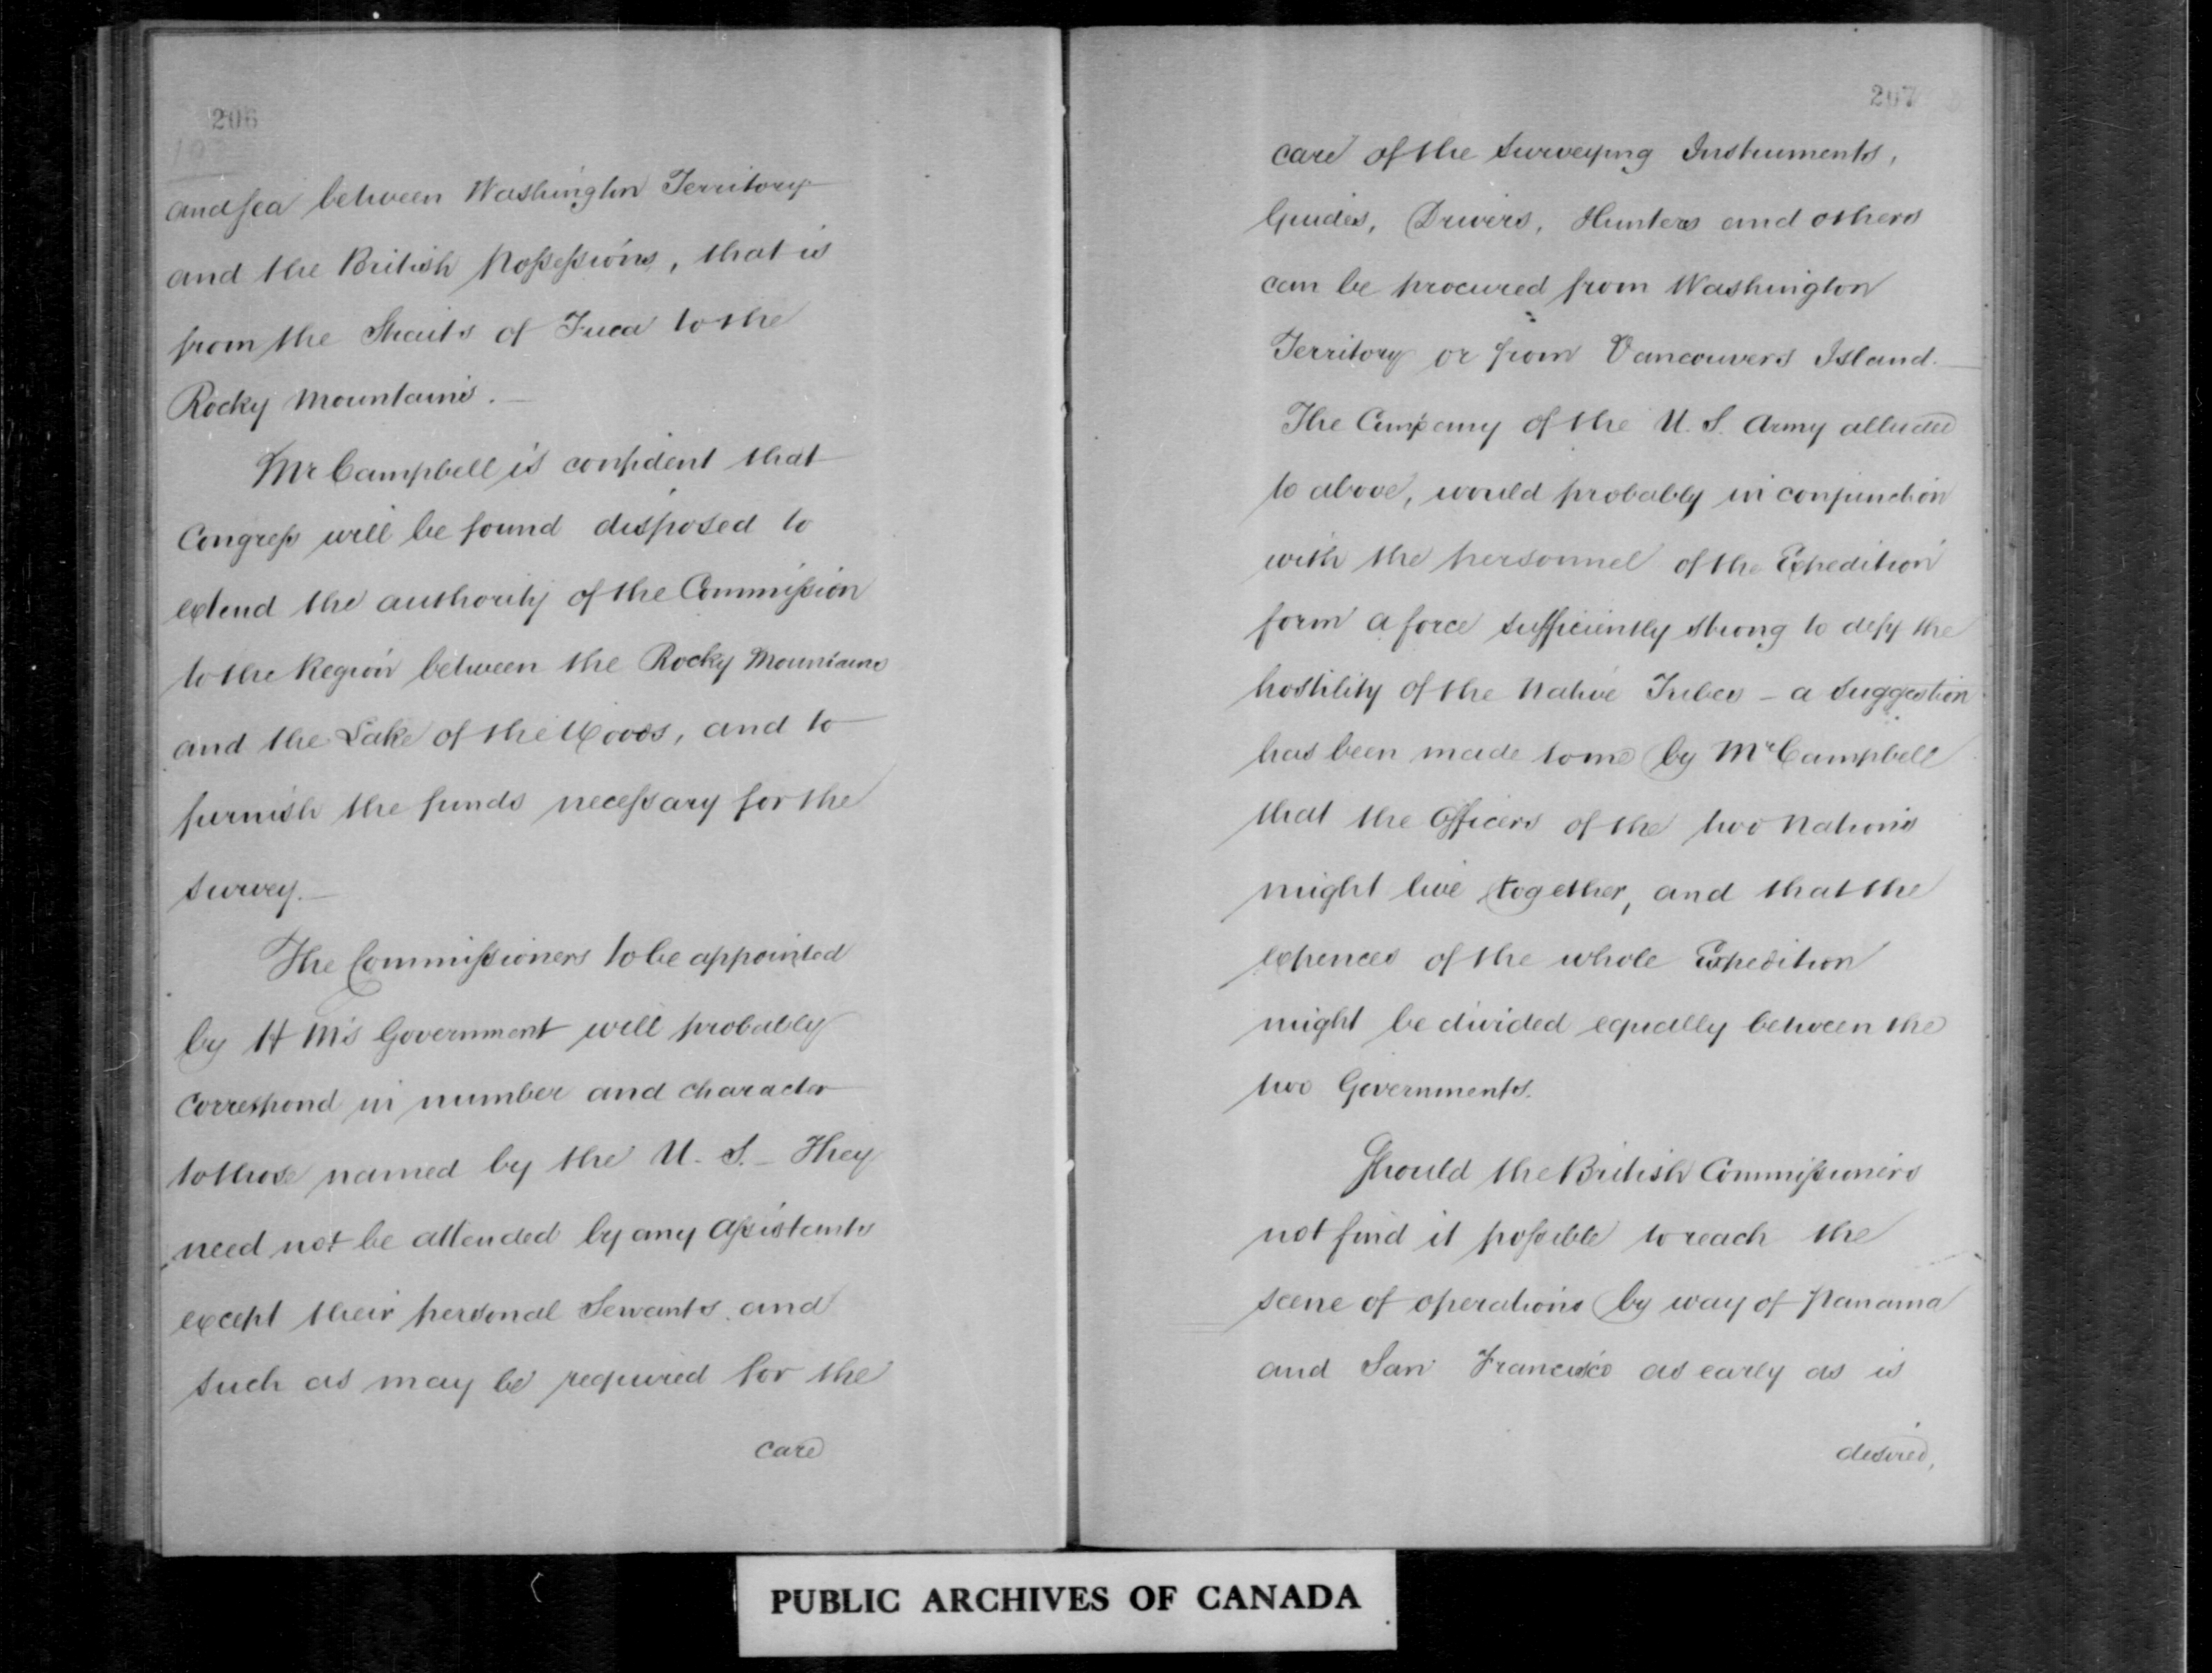 206
and sea between Washington Territory
and the British Possessions, that is
from the Straits of Fuca to the
Rocky Mountains. —
Mr Campbell is confident that
Congress will be found disposed to
extend the authority of the Commission
to the Region between the Rocky Mountains
and the Lake of the Woods, and to
furnish the funds necessary for the
survey. —
The Commissioners to be appointed
by H M's Government will probably
correspond in number and character
to those named by the U. S. — They
need not be attended by any Assistants
except their personal Servants and
such as may be required for the
care
207
care of the Surveying Instruments,
Guides, Drivers, Hunters and others
can be procured from Washington
Territory or from Vancouvers Island. —
The Company of the U. S. Army alluded
to above, would probably in conjunction
with the personnel of the Expedition
form a force sufficiently strong to defy the
hostility of the Native Tribes — a suggestion
has been made to me by Mr Campbell
that the Officers of the two Nations
might live together, and that the
expences of the whole Expedition
might be divided equally between the
two Governments.
Should the British Commissioners
not find it possible to reach the
scene of operations by way of Panama
and San Francisco as early as is
desired,
PUBLIC ARCHIVES OF CANADA